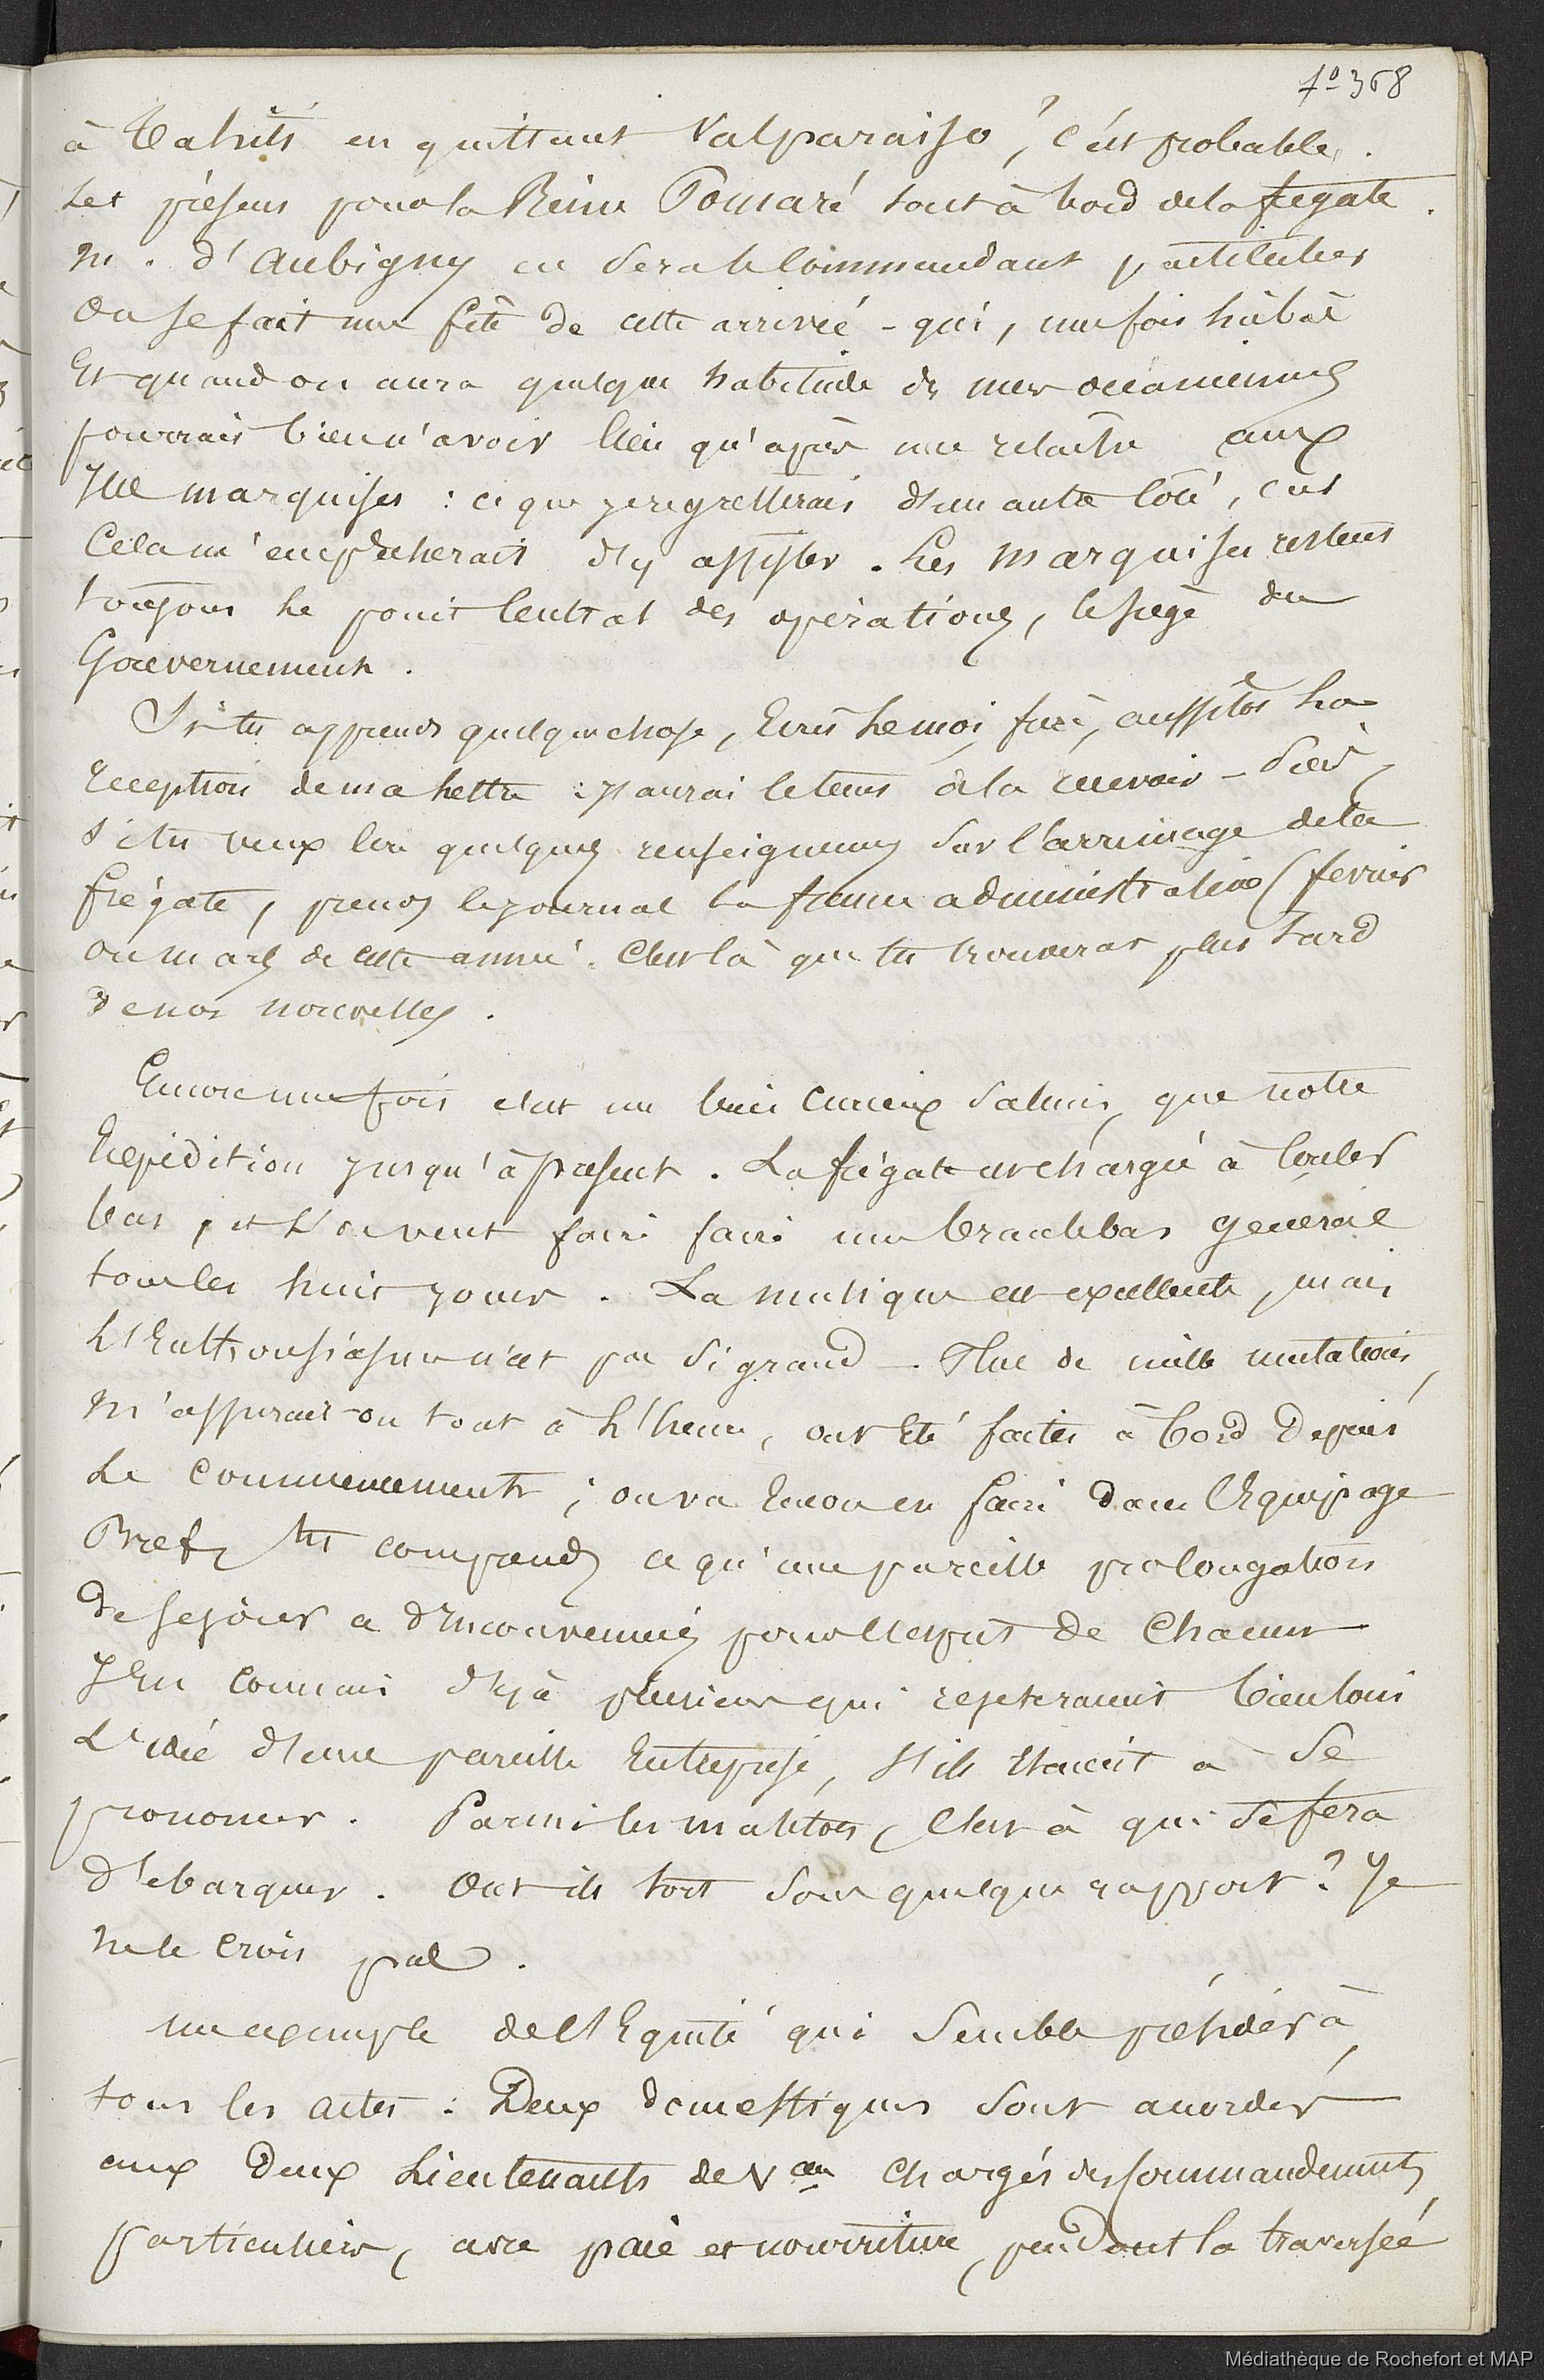 fo 368
à Tahiti en quittant Valparaiso ? C'est probable.
Les présens pour la Reine Pomaré sont à bord de la frégate.
M. d'Aubigny en sera le Commandant particulier
On se fait une fête de cette arrivée - qui, une fois là bas
Et quand on aura quelque habitude des mers océaniennes
pourrait bien n'avoir lieu qu'après une relache aux
Iles marquises : ce que je regretterais d'un autre côté, car
Cela m'empêcherait d'y assister. Les Marquises restent
toujours le point Central des opérations, le siège du
Gouvernement.
Si tu apprends quelque chose, Ecris le moi, frère, aussitôt la
reception de ma lettre : j'aurai le tems de la recevoir -
Si tu veux lire quelques renseignemens sur l'arrimage de la
frégate, prends le journal la france administrative (fevrier
ou mars de cette année. C'est là que tu trouveras plus tard
de nos nouvelles.
Encore une fois c'est un bien curieux salmis, que notre
Expédition jusqu'à présent. La frégate est chargée à Couler
bas, et l'on veut faire faire un branlebas général
tous les huit jours. La musique est excellente, mais
L'Enthousiasme n'est pas si grand - Plus de mille mutations,
m'assurait-on tout à l'heure, ont Eté faites à bord depuis
Le Commencement ; on va Encore en faire dans l'Equipage
Bref, tu comprends ce qu'une pareille prolongation
de séjour a d'inconveniens pour l'esprit de Chacun
J'En Connais déjà plusieurs qui rejeteraient bien loin
L'idée d'une pareille Entreprise, s'ils Etaient à se
prononcer. Parmi les matelots, C'est à qui se fera
débarquer. Ont ils tort sous quelque rapport ? Je
ne le crois pas.
un exemple de l'Equité qui semble présider à
tous les actes : Deux domestiques sont accordés
aux deux Lieutenants de Veau Chargés des Commandements
particuliers, avec paie et nourriture, pendant la traversée
Médiathèque de Rochefort et MAP